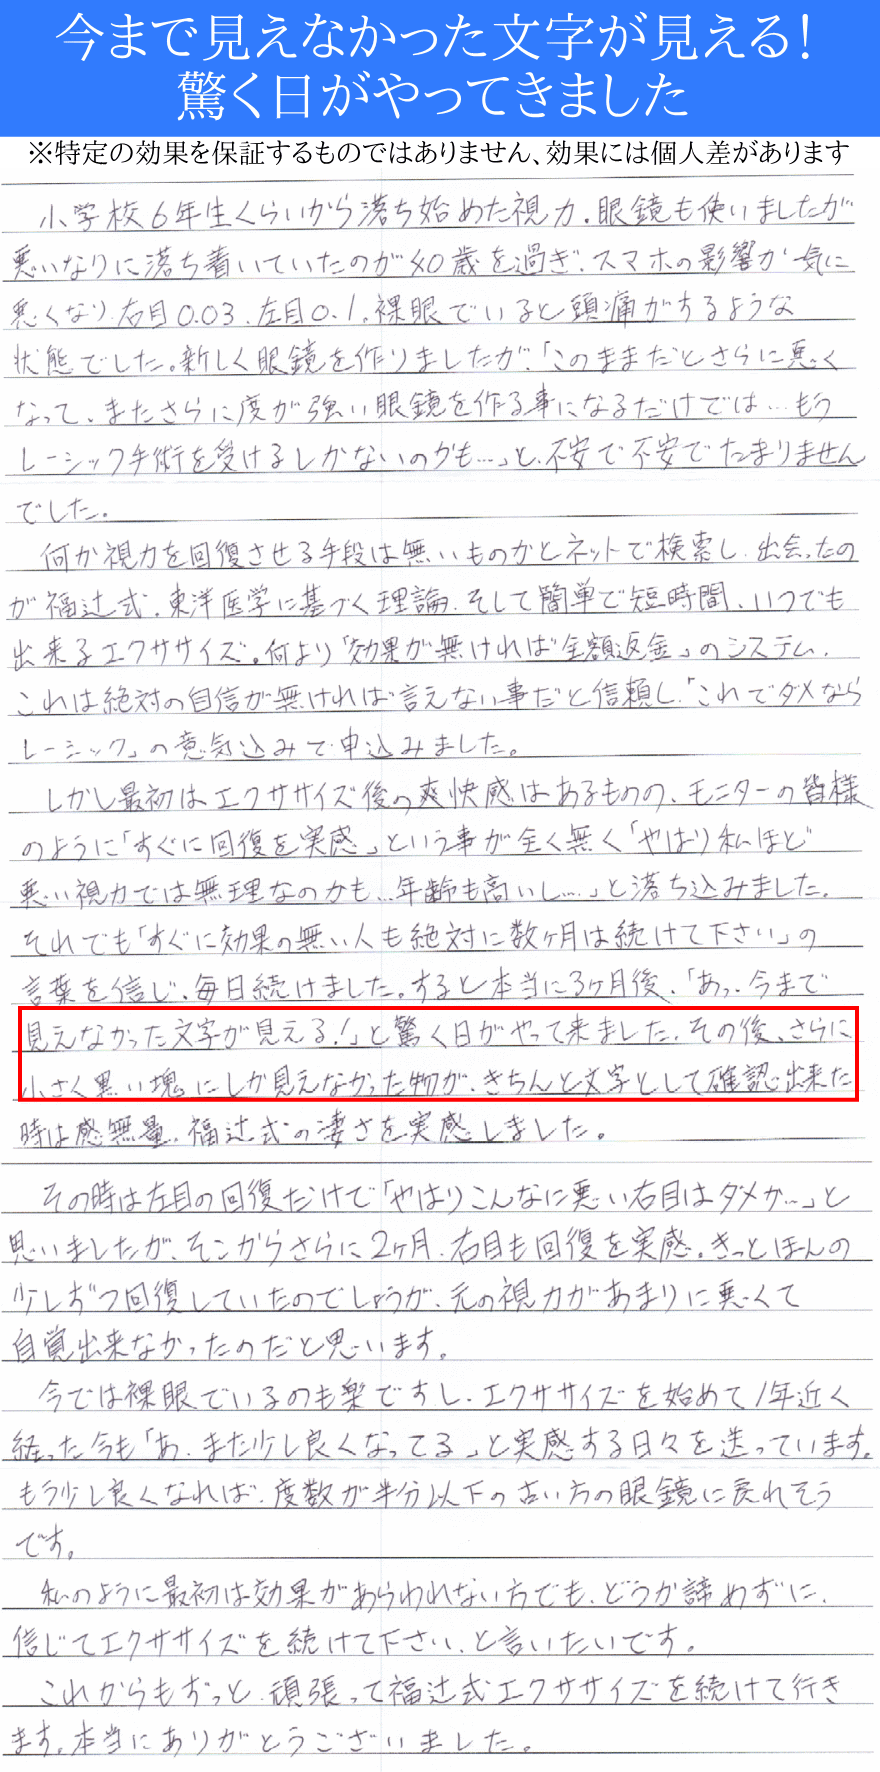 今まで見えなかった文字が見える!
驚く日がやってきました
※特定の効果を保証するものではありません、効果には個人差があります
小学校6年生くらいから落ち始めた視力。眼鏡も使いましたが
悪いなりに落ち着いていたのが40歳を過ぎ、スマホの影響か一気に
悪くなり、右目0.03、左目0.1。裸眼でいると頭痛がするような
状態でした。新しく眼鏡を作りましたが、「このままだとさらに悪く
なって、またさらに度が強い眼鏡を作る事になるだけでは…もう
レーシック手術を受けるしかないのかも…」と、不安で不安でたまりません
でした。
何か視力を回復させる手段は無いものかとネットで検索し、出会ったの
が福辻式。東洋医学に基づく理論、そして簡単で短時間、いつでも
出来るエクササイズ。何より「効果が無ければ全額返金」のシステム。
これは絶対の自信が無ければ言えない事だと信頼し、「これでダメなら
レーシック」の意気込みで申込みました。
しかし最初はエクササイズ後の爽快感はあるものの、モニターの皆様
のように「すぐに回復を実感」という事が全く無く「やはり私ほど
悪い視力では無理なのかも…年齢も高いし…」と落ち込みました。
それでも「すぐに効果の無い人も絶対に数ヶ月は続けて下さい」の
言葉を信じ、毎日続けました。すると本当に3ヶ月後、「あっ、今まで
見えなかった文字が見える!」と驚く日がやって来ました。その後、さらに
小さく黒い塊にしか見えなかった物が、きちんと文字として確認出来た
時は感無量。福辻式の凄さを実感しました。
その時は左目の回復だけで「やはりこんなに悪い右目はダメか…」と
思いましたが、そこからさらに2ヶ月、右目も回復を実感。きっとほんの
少しずつ回復していたのでしょうが、元の視力があまりに悪くて
自覚出来なかったのだと思います。
今では裸眼でいるのも楽ですし、エクササイズを始めて1年近く
経った今も「あ、また少し良くなってる」と実感する日々を送っています。
もう少し良くなれば、度数が半分以下の古い方の眼鏡に戻れそう
です。
私のように最初は効果があらわれない方でも、どうか諦めずに、
信じてエクササイズを続けて下さい、と言いたいです。
これからもずっと、頑張って福辻式エクササイズを続けて行き
ます。本当にありがとうございました。